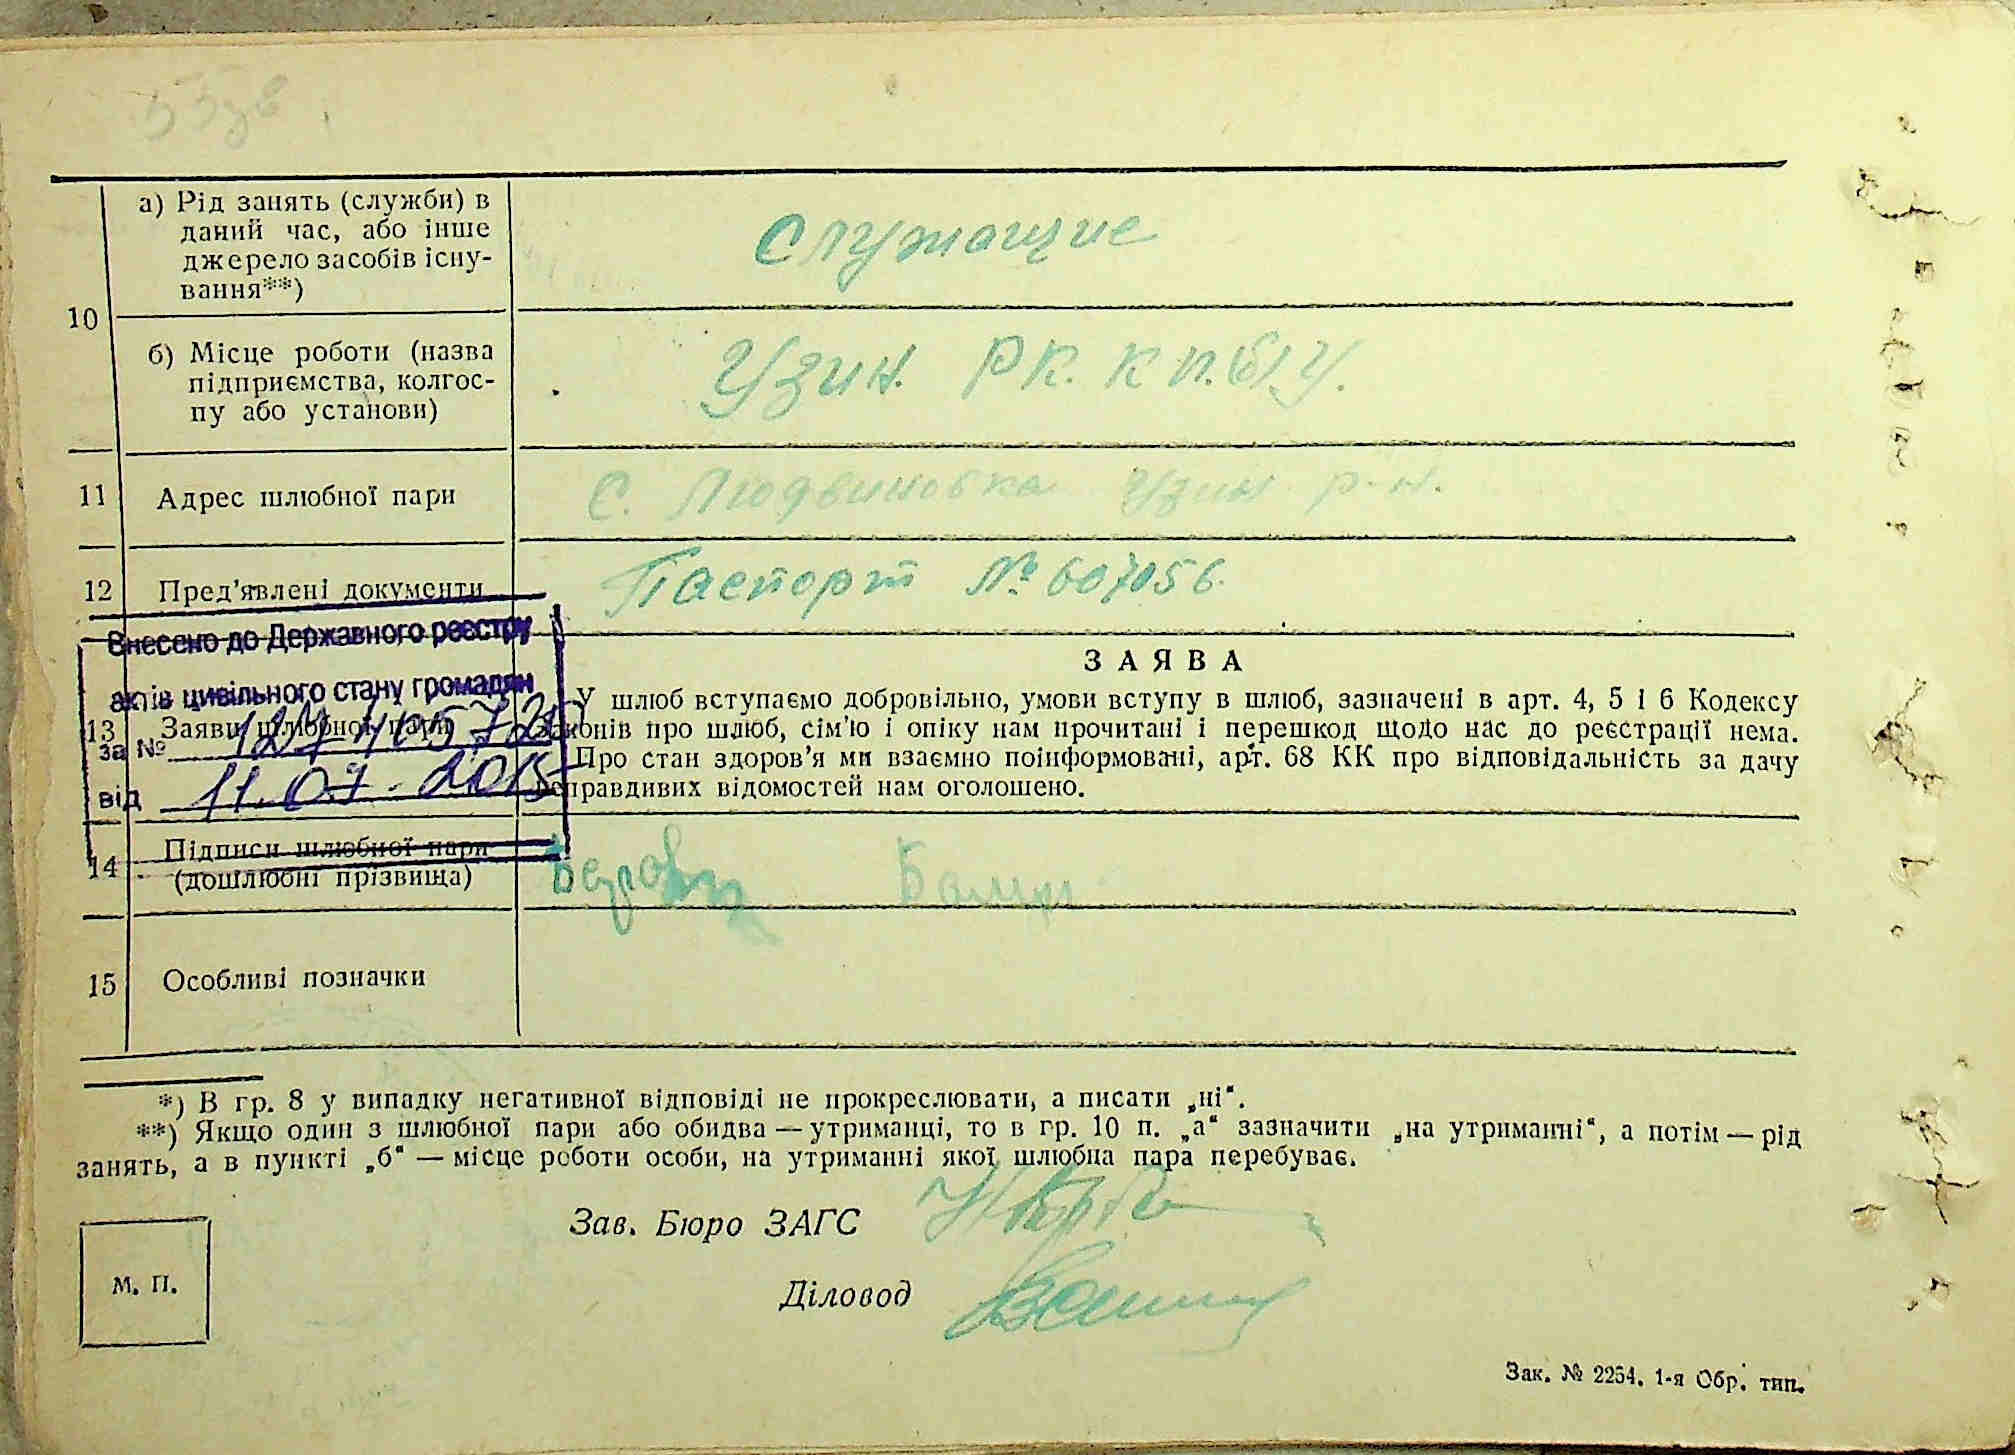 33зв
а) Рід занять (служби) в
даний час, або інше
джерело засобів існу-
вання**)
Служащие
10
б) Місце роботи (назва
підприємства, колгос-
пу або установи)
Узин. РК. КП(б)У.
11 Адрес шлюбної пари
с. Людвиновка Узин р-н.
12 Пред'явлені документи
Паспорт № 607056.
Внесено до Державного реєстру
актів цивільного стану громадян
за №
від 11.07.2015
13 Заяви шлюбної пари
ЗАЯВА
У шлюб вступаємо добровільно, умови вступу в шлюб, зазначені в арт. 4, 5 і 6 Кодексу
законів про шлюб, сім'ю і опіку нам прочитані і перешкод щодо нас до реєстрації нема.
Про стан здоров'я ми взаємно поінформовані, арт. 68 КК про відповідальність за дачу
неправдивих відомостей нам оголошено.
14 Підписи шлюбної пари
(дошлюбні прізвища)
15 Особливі позначки
*) В гр. 8 у випадку негативної відповіді не прокреслювати, а писати „ні“.
**) Якщо один з шлюбної пари або обидва — утриманці, то в гр. 10 п. „а“ зазначити „на утриманні“, а потім — рід
занять, а в пункті „б“ — місце роботи особи, на утриманні якої шлюбна пара перебуває.
Зав. Бюро ЗАГС
М. П.
Діловод
Зак. № 2254. 1-я Обр. тип.